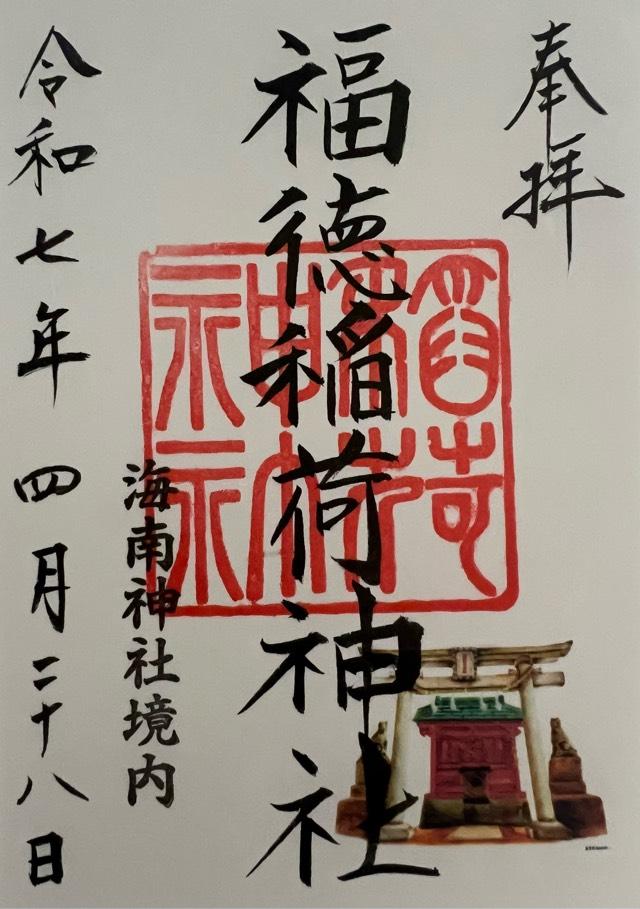 奉拝
福徳稲荷神社
海南神社境内
令和七年四月二十八日